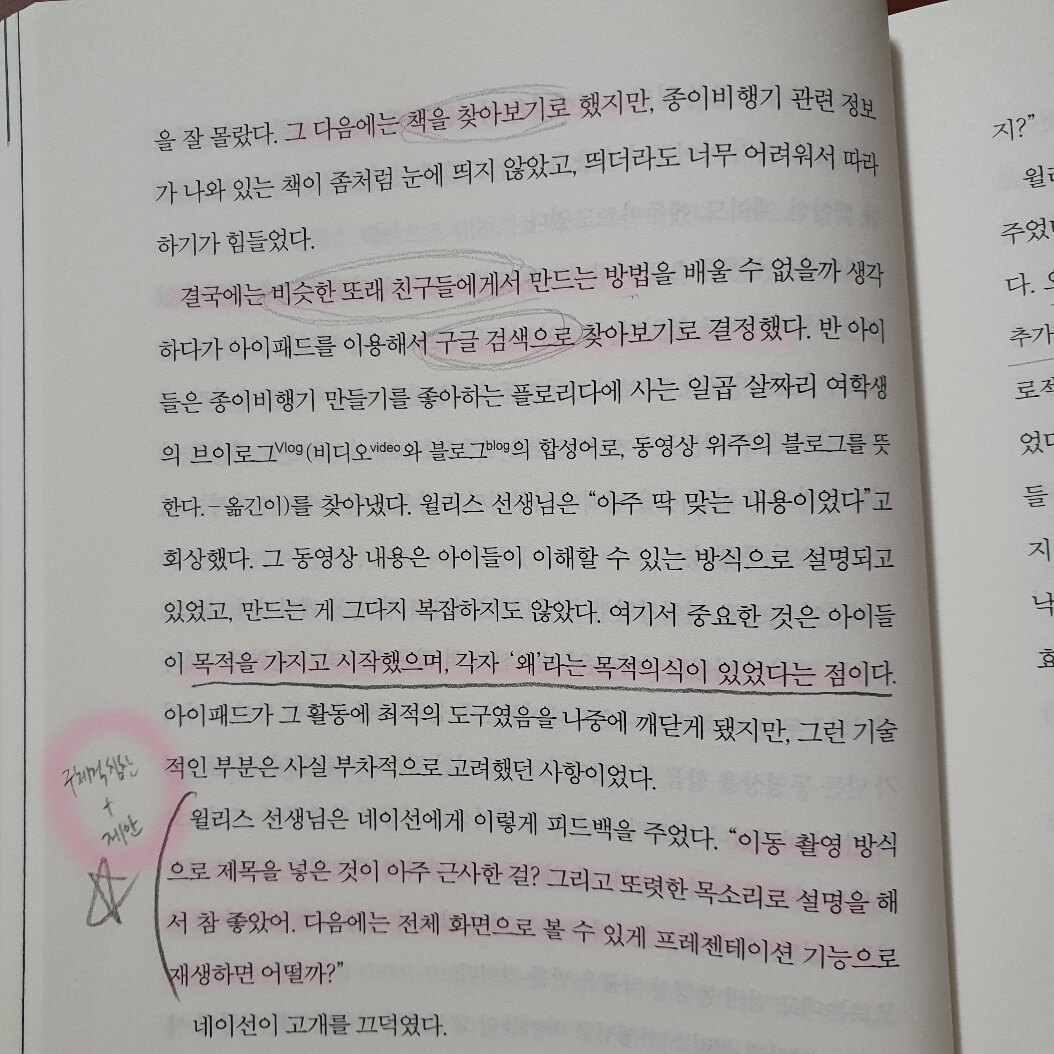 을 잘 몰랐다. 그 다음에는 책을 찾아보기로 했지만, 종이비행기 관련 정보
가 나와 있는 책이 좀처럼 눈에 띄지 않았고, 띄더라도 너무 어려워서 따라
하기가 힘들었다.
결국에는 비슷한 또래 친구들에게서 만드는 방법을 배울 수 없을까 생각
하다가 아이패드를 이용해서 구글 검색으로 찾아보기로 결정했다. 반 아이
들은 종이비행기 만들기를 좋아하는 플로리다에 사는 일곱 살짜리 여학생
의 브이로그Vlog(비디오video와 블로그blog의 합성어로, 동영상 위주의 블로그를 뜻
한다.-옮긴이)를 찾아냈다. 윌리스 선생님은 “아주 딱 맞는 내용이었다”고
회상했다. 그 동영상 내용은 아이들이 이해할 수 있는 방식으로 설명되고
있었고, 만드는 게 그다지 복잡하지도 않았다. 여기서 중요한 것은 아이들
이 목적을 가지고 시작했으며, 각자 ‘왜’라는 목적의식이 있었다는 점이다.
아이패드가 그 활동에 최적의 도구였음을 나중에 깨닫게 됐지만, 그런 기술
적인 부분은 사실 부차적으로 고려했던 사항이었다.
윌리스 선생님은 네이선에게 이렇게 피드백을 주었다. “이동 촬영 방식
으로 제목을 넣은 것이 아주 근사한 걸? 그리고 또렷한 목소리로 설명을 해
서 참 좋았어. 다음에는 전체 화면으로 볼 수 있게 프레젠테이션 기능으로
재생하면 어떨까?”
네이선이 고개를 끄덕였다.
구체적 칭찬
+
제안
지?”
주었
다.
추가
로
었다
들
지